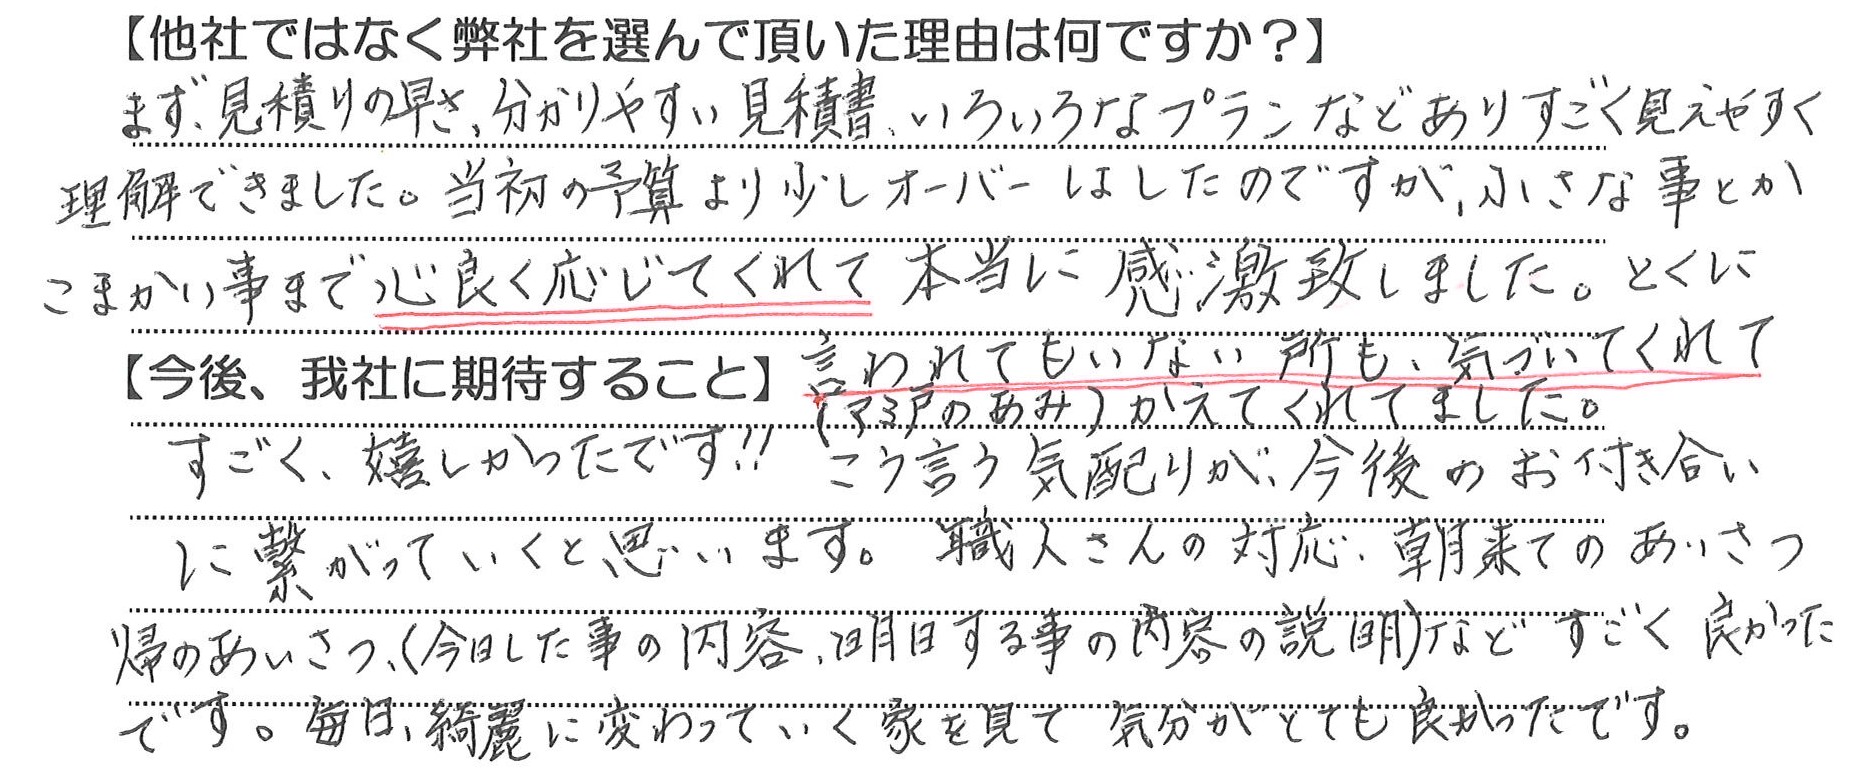 【他社ではなく弊社を選んで頂いた理由は何ですか?】
まず、見積りの早さ、分かりやすい見積書、いろいろなプランなどありすごく見えやすく
理解できました。当初の予算より少しオーバーはしたのですが、小さな事とか
こまかい事まで心良く応じてくれて本当に感激致しました。とくに
【今後、我社に期待すること】言われてもいない所も、気づいてくれて
(アミ戸のあみ)かえてくれてました。
すごく、嬉しかったです!! こう言う気配りが、今後のお付き合い
に繋がっていくと思います。職人さんの対応、朝来てのあいさつ
帰のあいさつ、(今日した事の内容、明日する事の内容の説明)などすごく良かった
です。毎日、綺麗に変わっていく家を見て気分がとても良かったです。